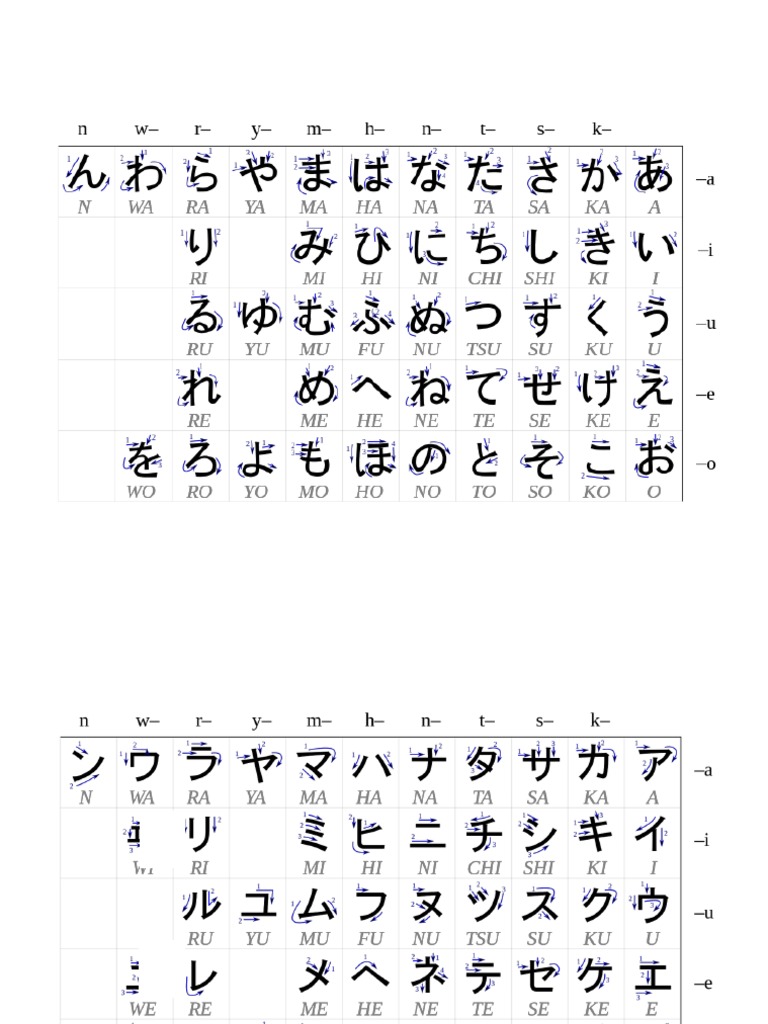 n w– r– y– m– h– n– t– s– k–
ん わ ら や ま は な た さ か あ –a
N WA RA YA MA HA NA TA SA KA A
り み ひ に ち し き い –i
RI MI HI NI CHI SHI KI I
る ゆ む ふ ぬ つ す く う –u
RU YU MU FU NU TSU SU KU U
れ め へ ね て せ け え –e
RE ME HE NE TE SE KE E
を ろ よ も ほ の と そ こ お –o
WO RO YO MO HO NO TO SO KO O
n w– r– y– m– h– n– t– s– k–
ン ワ ラ ヤ マ ハ ナ タ サ カ ア –a
N WA RA YA MA HA NA TA SA KA A
リ ミ ヒ ニ チ シ キ イ –i
RI MI HI NI CHI SHI KI I
ル ユ ム フ ヌ ツ ス ク ウ –u
RU YU MU FU NU TSU SU KU U
レ メ ヘ ネ テ セ ケ エ –e
WE RE ME HE NE TE SE KE E